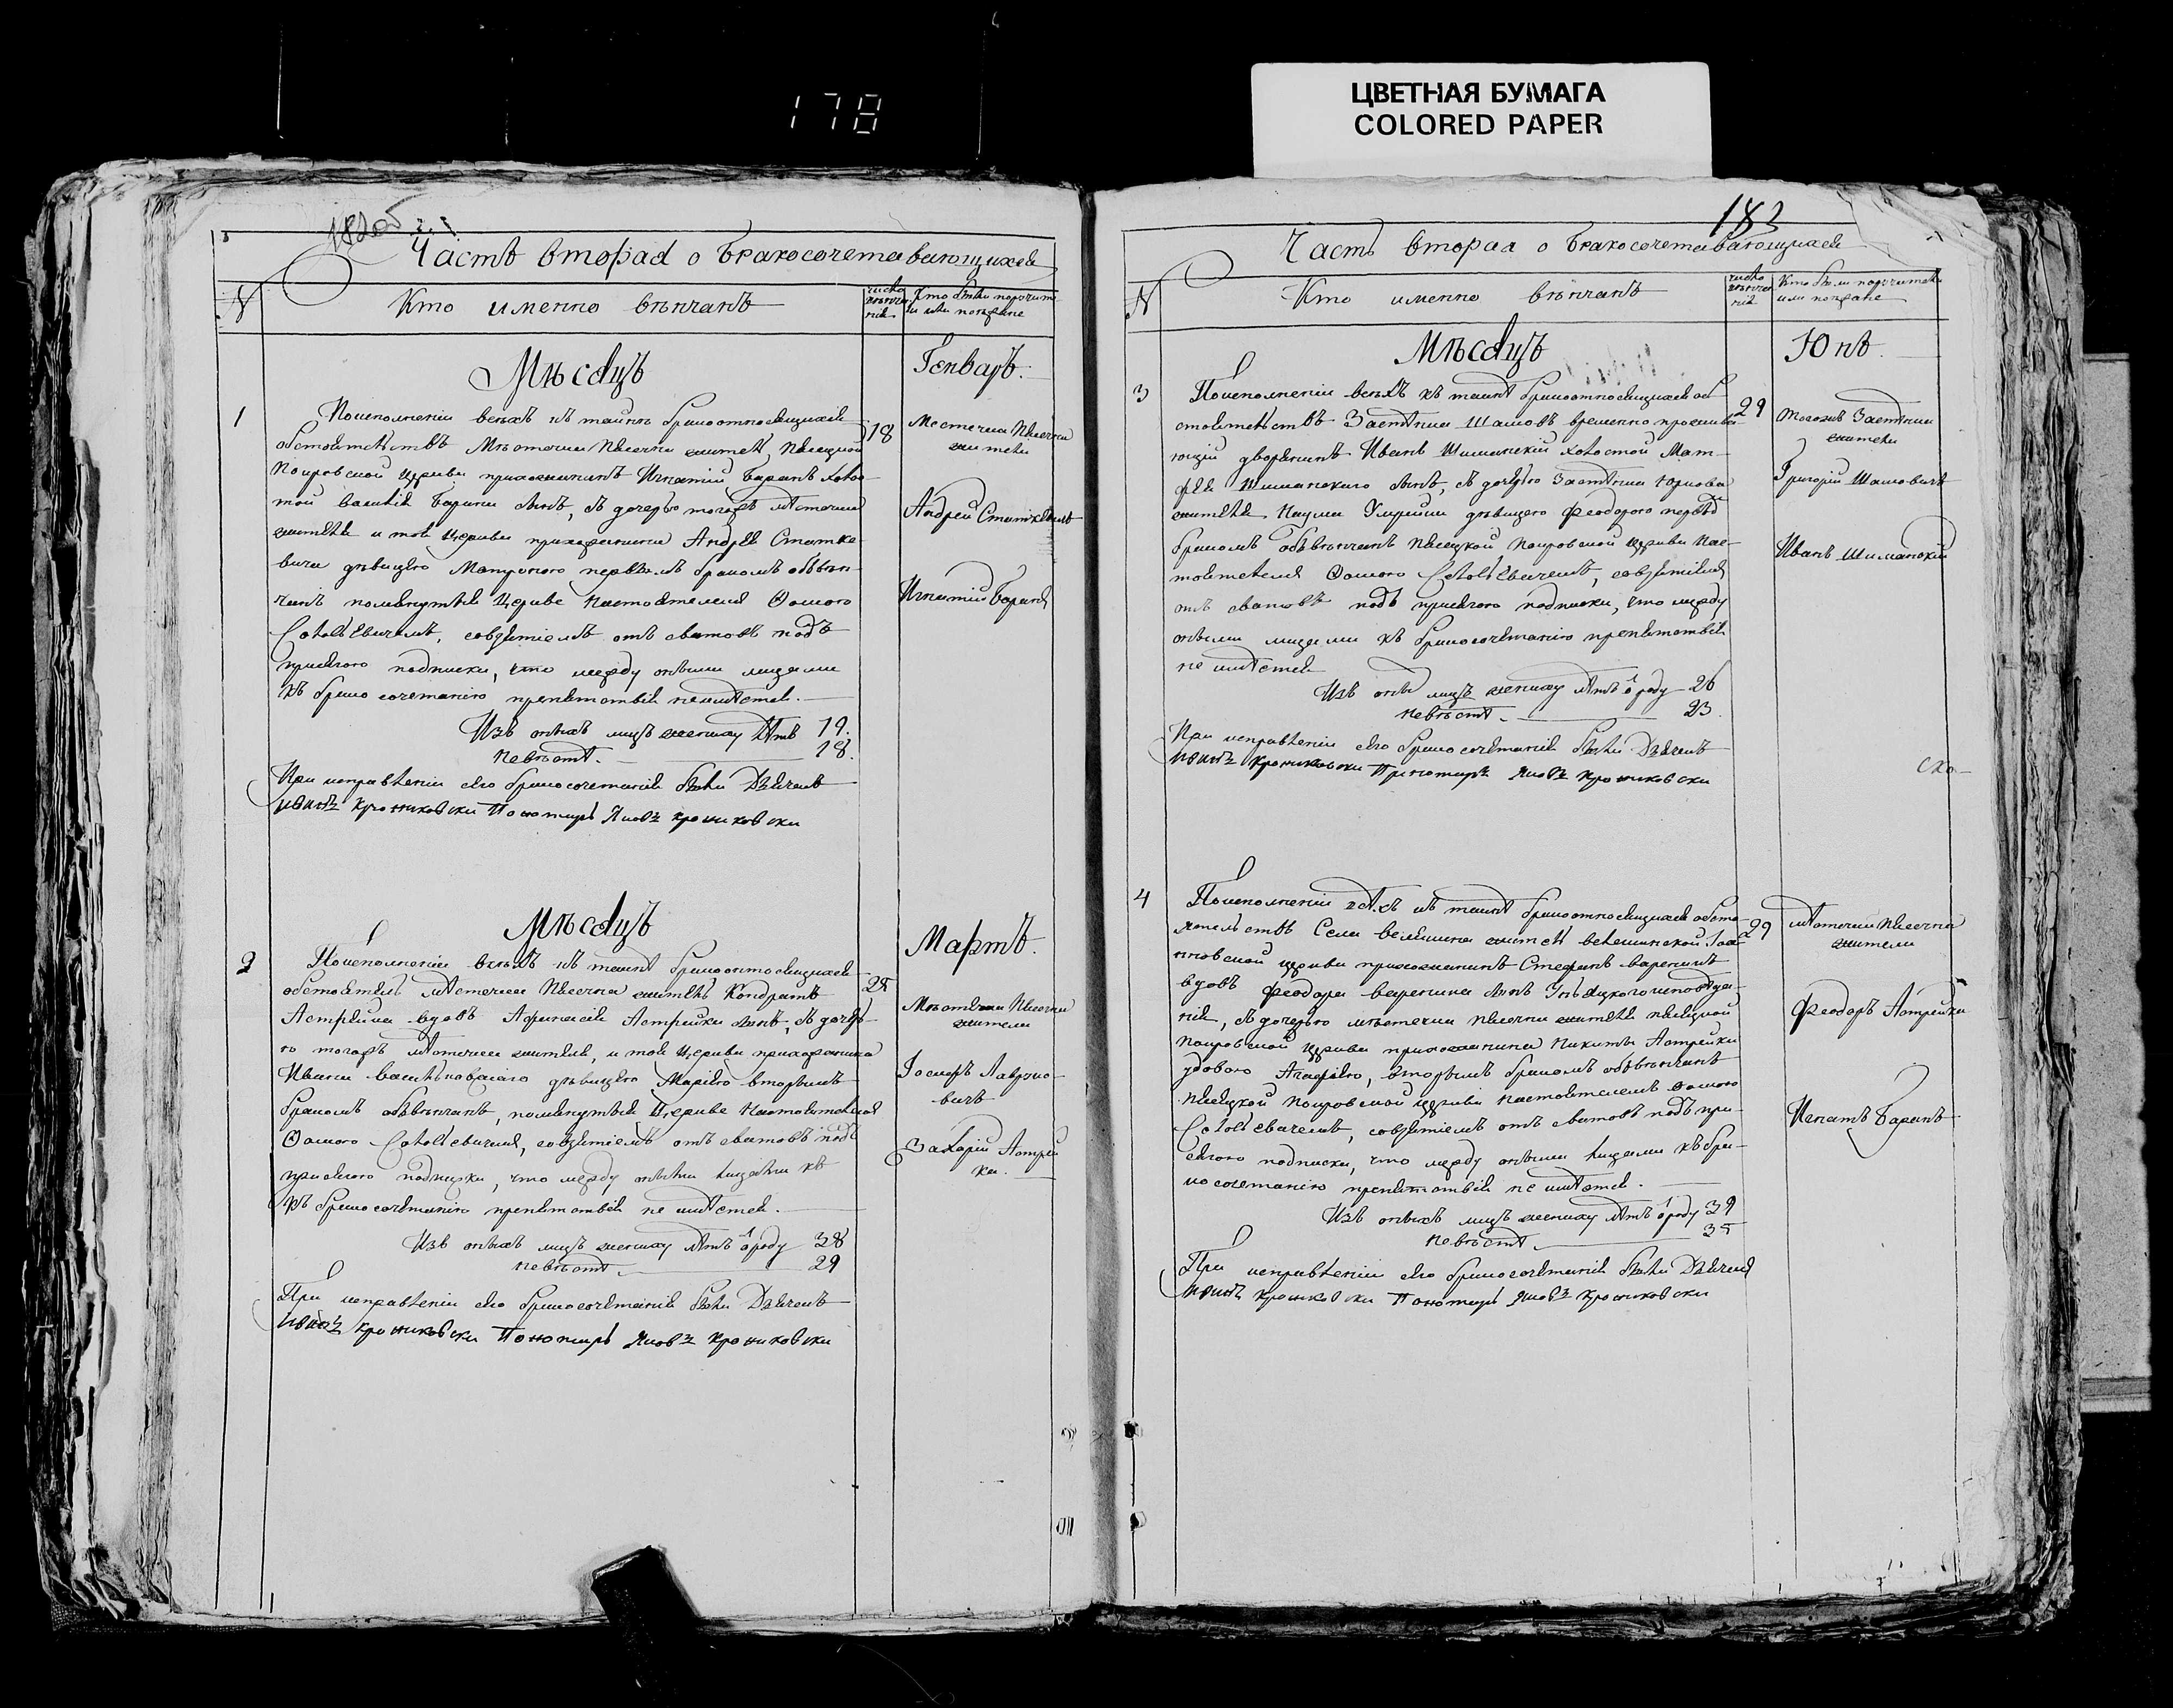 178
ЦВЕТНАЯ БУМАГА
COLORED PAPER
182об
Часть вторая о бракосочетавающихся
N
Кто именно вѣнчанъ
число вѣнчанія
Кто были поручители или поезжане
Мѣсяцъ
Генварь.
1
Поисполненіи всѣхъ къ тайнѣ бракоотносящихся
обстоятельствъ Мѣстечка Пясечна житель, Пясецкой
Покровской Церкви прихожанинъ Игнатій Баранъ холос-
той Василія Барана сынъ, съ дочерью тогожъ мѣстечка
жителя и той Церкви прихожанина Андрея Статке-
вича дѣвицею Матроною первымъ бракомъ обвѣн-
чанъ помянутыя Церкве Настоятелемъ Ѳомою
Соколевичемъ, совзятіемъ отъ сватовъ подъ
присягою подписки, что между оными лицами
къ бракосочетанію препятствія неимѣется.
Изъ оныхъ лицъ жениху лѣтъ 19.
невѣстѣ. 18.
При исправленіи сего бракосочетанія были Дьячекъ
Иванъ Крониковски Пономарь Яковъ Крониковски
18
Местечка Пясечна
жители
Андрей Статкевичъ
Игнатій Баранъ
Мѣсяцъ
Мартъ.
2
Поисполненіи всѣхъ къ тайнѣ бракоотносящихся
обстоятель мѣстечка Пясечна житель Кондратъ
Астрейка вдовъ Афанасія Астрейки сынъ, съ дочерь-
ю тогожъ мѣстечка жителя, и той Церкви прихожанина
Ивана дѣвицею Маріею вторымъ
бракомъ обвѣнчанъ, помянутыя Церкве Настоятелемъ
Ѳомою Соколевичемъ, совзятіемъ отъ сватовъ подъ
присягою подписки, что между оными лицами къ
къ бракосочетанію препятствія не имѣется.
Изъ оныхъ лицъ жениху лѣтъ ѿ роду 38
невѣстѣ. 29
При исправленіи сего бракосочетанія были Дьячекъ
Иванъ Крониковски Пономарь Яковъ Крониковски
25
Мѣстечка Пясечна
жители
Лаврино-
вичъ
Захарій Астрей
ка.
183
Часть вторая о бракосочетавающихся
N
Кто именно вѣнчанъ
число вѣнчанія
Кто были поручители или поезжане
Мѣсяцъ
Юнь.
3
Поисполненіи всѣхъ къ тайнѣ бракоотносящихся об-
стоятельствъ Застѣнка Шашовъ временно прожива-
ющій дворянинъ Иванъ Шиманскій холостой Мат-
фея Шиманскаго сынъ, съ дочерью Застѣнка
жителя Наума дѣвицею Феодорою первымъ
бракомъ обвѣнчанъ Пясецкой Покровской церкви Нас-
тоятелемъ Ѳомою Соколевичемъ, совзятіемъ
отъ сватовъ подъ присягою подписки, что между
оными лицами къ бракосочетанію препятствія
не имѣется
Изъ оны лицъ жениху лѣтъ ѿ роду 26
невѣстѣ. 23.
При исправленіи сего бракосочетанія были Дьячекъ
Иванъ Крониковски Пономарь Яковъ Крониковски
29
тогожъ Застѣнка
жители
Григорій Шашовичъ
Иванъ Шиманскій
ско-
4
Поисполненіи всѣхъ къ тайнѣ бракоотносящихся обсто-
ятельствъ Села Велешина житель Велешинской Іоа-
нновской церкви прихожанинъ Стефанъ Вареникъ
вдовъ Феодора Вареника сынъ Уніяцкого исповѣда-
нія, съ дочерью мѣстечка Пясечна жителя Пясецкой
Покровской церкви прихожанина Никиты Астрейки
удовою Агафіею, вторымъ бракомъ обвѣнчанъ
Пясецкой Покровской церкви Настоятелемъ Ѳомою
Соколевичемъ, совзятіемъ отъ сватовъ подъ при-
сягою подписки, что между оными лицами къ бра-
косочетанію препятствія не имѣется.
Изъ оныхъ лицъ жениху лѣтъ ѿ роду 39
невѣстѣ. 35
При исправленіи сего бракосочетанія были Дьячекъ
Иванъ Крониковски Пономарь Яковъ Крониковски
29
мѣстечка Пясечна
жители
Феодоръ Астрейка
Игнатъ Баранъ